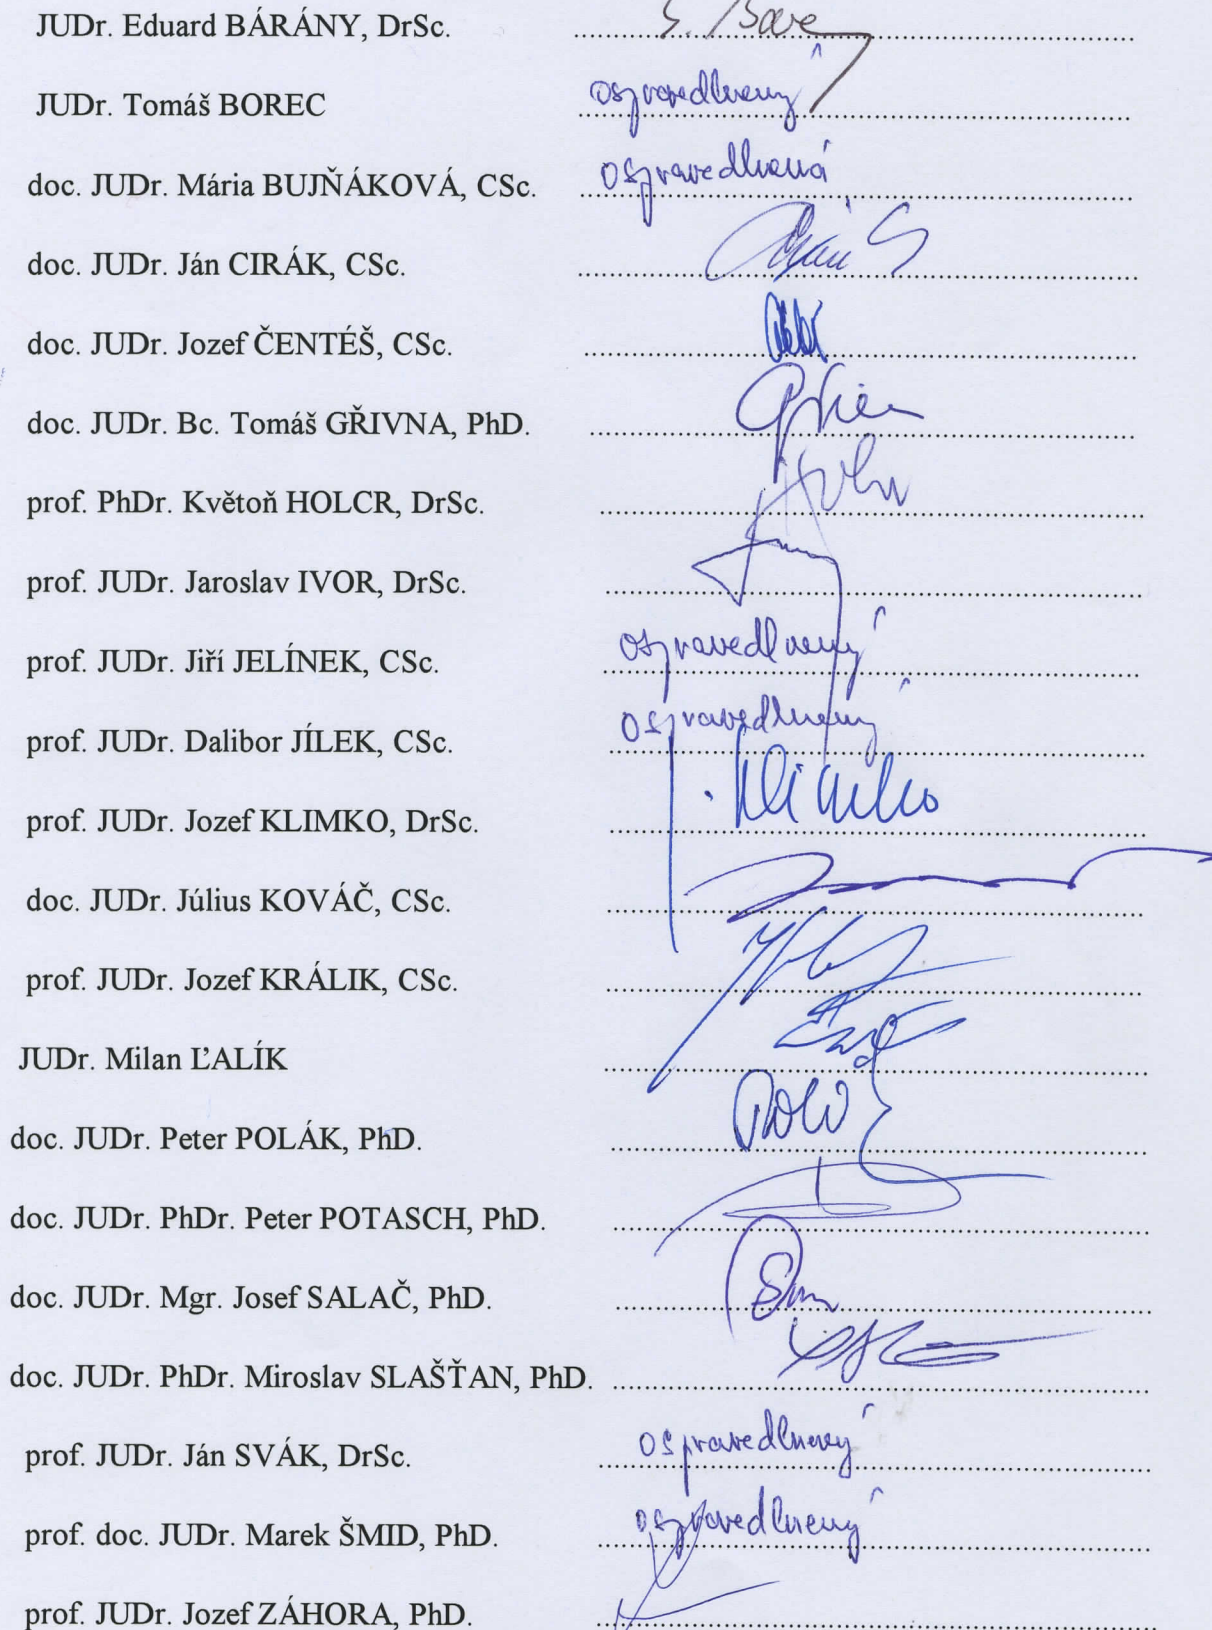 JUDr. Eduard BÁRÁNY, DrSc.
JUDr. Tomáš BOREC ospravedlnený
doc. JUDr. Mária BUJŇÁKOVÁ, CSc. ospravedlnená
doc. JUDr. Ján CIRÁK, CSc.
doc. JUDr. Jozef ČENTÉŠ, CSc.
doc. JUDr. Bc. Tomáš GŘIVNA, PhD.
prof. PhDr. Květoň HOLCR, DrSc.
prof. JUDr. Jaroslav IVOR, DrSc.
prof. JUDr. Jiří JELÍNEK, CSc. ospravedlnený
prof. JUDr. Dalibor JÍLEK, CSc. ospravedlnený
prof. JUDr. Jozef KLIMKO, DrSc. Klimko
doc. JUDr. Július KOVÁČ, CSc.
prof. JUDr. Jozef KRÁLIK, CSc.
JUDr. Milan ĽALÍK
doc. JUDr. Peter POLÁK, PhD.
doc. JUDr. PhDr. Peter POTASCH, PhD.
doc. JUDr. Mgr. Josef SALAČ, PhD.
doc. JUDr. PhDr. Miroslav SLAŠŤAN, PhD.
prof. JUDr. Ján SVÁK, DrSc. ospravedlnený
prof. doc. JUDr. Marek ŠMID, PhD. ospravedlnený
prof. JUDr. Jozef ZÁHORA, PhD.